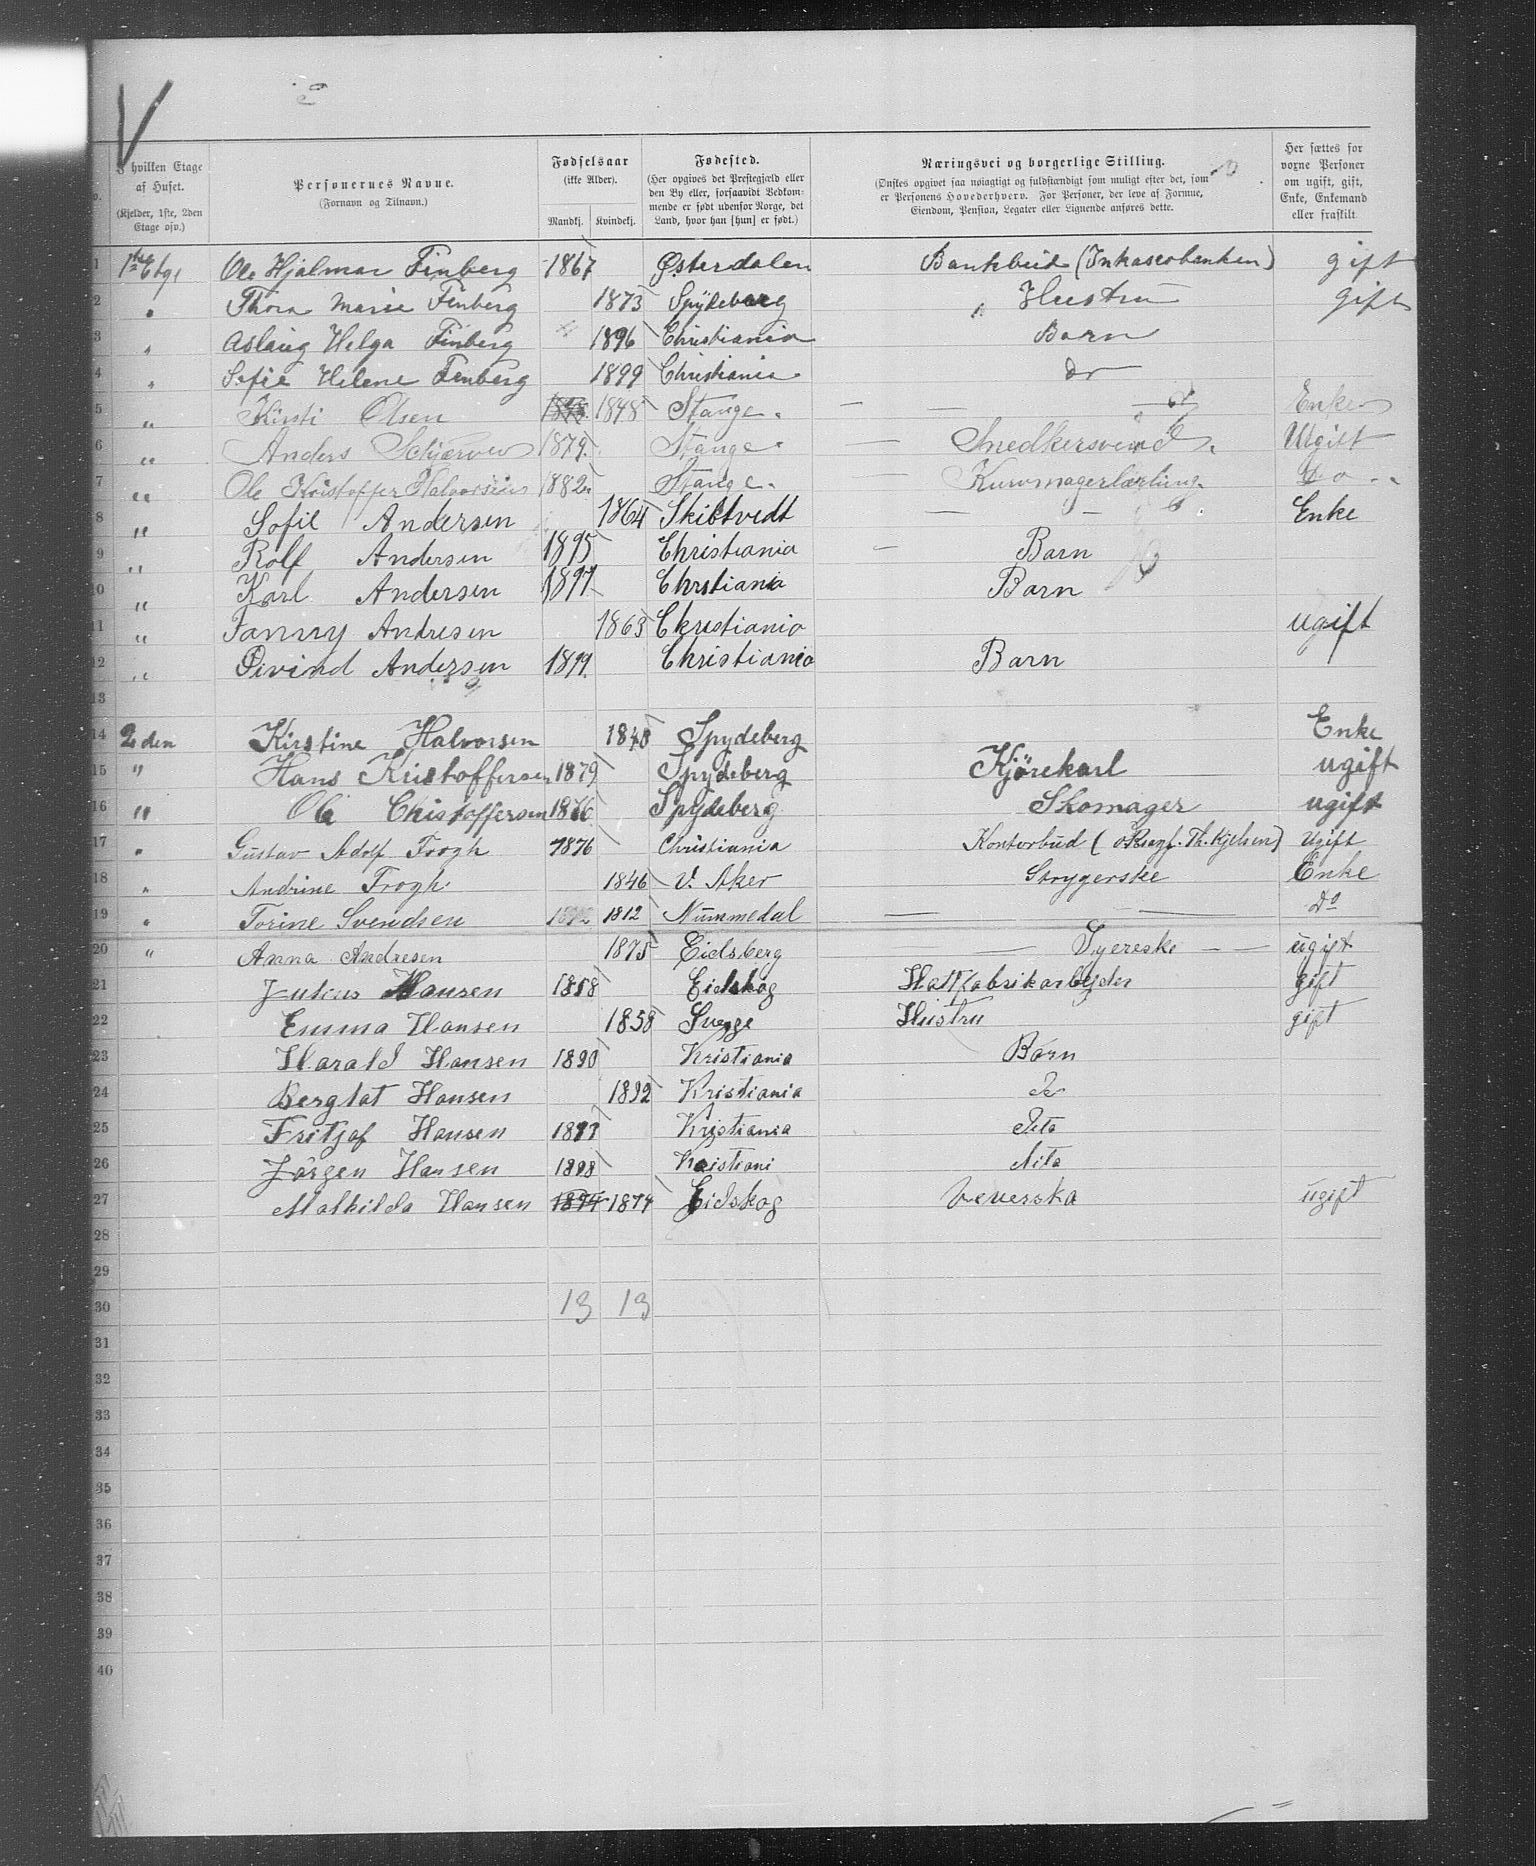 V
I hvilken Etage af Huset. (Kjelder, 1ste, 2den Etage osv.) Personernes Navne. (Fornavn og Tilnavn.) Fødselsaar (ikke Alder). Mandkj. Kvindekj. Fødested. (Her opgives det Prestegjæld eller den By eller, forsaavidt Vedkommende er født udenfor Norge, det Land, hvor han [hun] er født.) Næringsvei og borgerlige Stilling. (Ønskes opgivet saa nøiagtigt og fuldstændigt som muligt efter det, som er Personens Hovederhverv. For Personer, der leve af Formue, Eiendom, Pension, Legater eller Lignende anføres dette. Her sættes for voxne Personer om ugift, gift, Enke, Enkemand eller fraskilt.
1 1ste Etg. Ole Hjalmar Finberg 1867 Østerdalen Bankbud (Inkassobanken) gift
2 " Thora Marie Finberg 1873 Spydeberg Hustru gift
3 " Aslaug Helga Finberg 1896 Christiania Barn
4 " Sofie Helene Finberg 1899 Christiania do
5 " Kirsti Olsen 1848 Stange. — — Enke
6 " Anders 1879. Stange. — Snedkersvend. Ugift
7 " Ole Kristoffer Halvorsen 1882. Stange. — Kurvmagerlærling. Do
8 " Sofie Andersen 1864 Skibtvedt — — Enke
9 " Rolf Andersen 1895 Christiania — Barn
10 " Karl Andersen 1897 Chrstiania Barn
11 " Fanny Andresen 1863 Christiania ugift
12 " Øivind Andersen 1899. Christiania Barn
13
14 2den Kirstine Halvorsen 1840 Spydeberg Enke
15 " Hans Kristoffersen 1879 Spydeberg Kjørekarl ugift
16 " Ole Christoffersen 1876 Spydeberg Skomager ugift
17 " Gustav Adolf Frogh 1876 Christiania Kontorbud ( Th. Kjelsen) Ugift
18 " Andrine Frogh. 1846 V. Aker Strygerske Enke
19 " Torine Svendsen 1812 Nummedal — — Do
20 " Anna Andresen 1875 Eidsberg — Syerske — — ugift
21 Julius Hansen 1858 Eidskog Hattfabrikarbejder gift
22 Emma Hansen 1858 Sverge Hustru gift
23 Harald Hansen 1890 Kristiania Barn
24 Bergtat Hansen 1892 Kristiania Do
25 Fritjof Hansen 1893 Kristiania Dito
26 Jørgen Hansen 1898 Kristiani Dito
27 Mathilda Hansen 1874 1874 Eidskog Veverska ugift
28
29
30 13 13
31
32
33
34
35
36
37
38
39
40